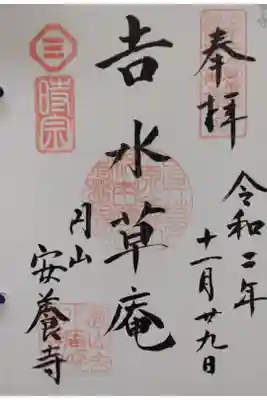 奉拝
令和二年
十一月廿九日
吉水草庵
円山
安養寺
三
時宗